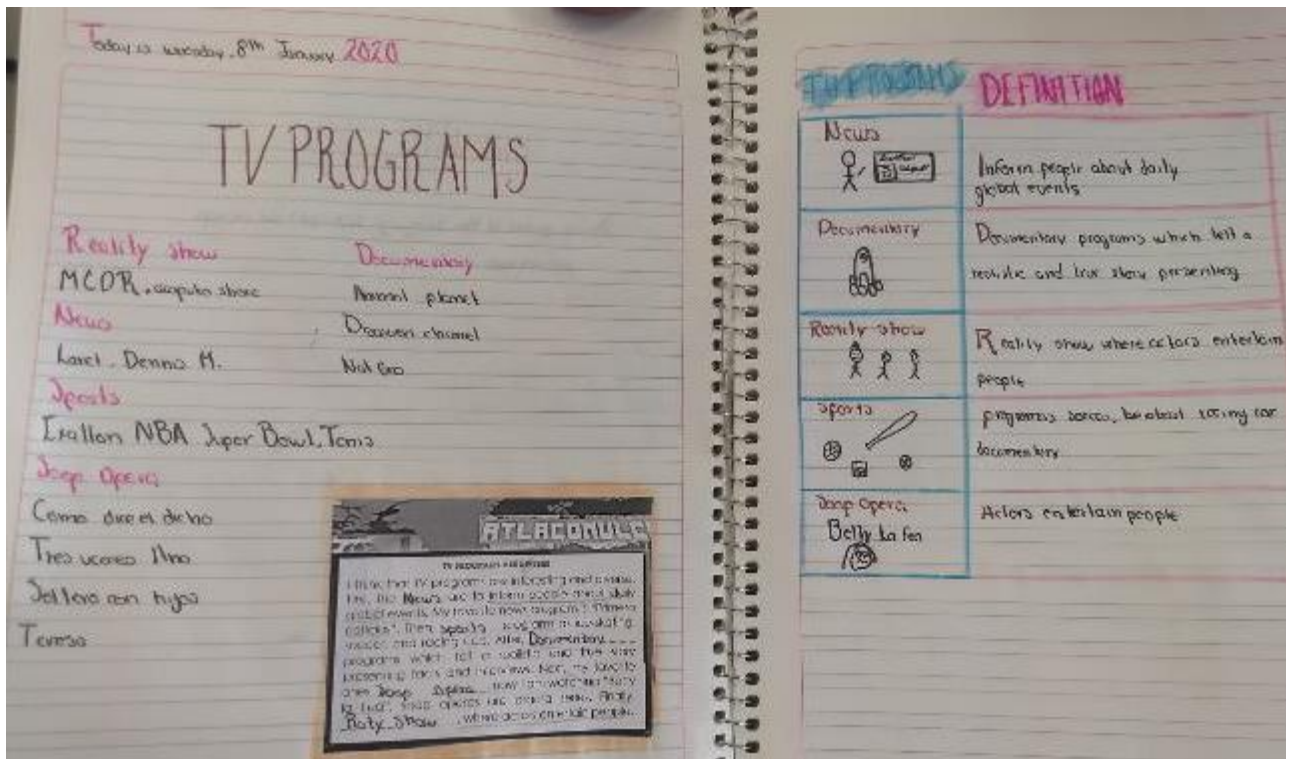 Today is wednesday, 8th January 2020
TV PROGRAMS
Reality show
MCDR,
News
Loret. Denna M.
Sports
NBA Super Bowl, Tenis
Soap Opera
Como dice el dicho
Tres veces Ana
Soltero con hijas
Teresa
Documentary
Animal planet
Discovery channel
Nat Geo
ATLACOMULC
I think that TV programs are interesting and
First, the News are to inform people about daily
global events. My favorite news program is "Primero
Noticias". Then sports program
soccer, and racing car. After, Documentary
programs which tell a realistic and true story
presenting facts and interviews. Next, my favorite
ones Soap Opera now I am watching "Betty
la fea". Soap operas are Finally,
Realty Show, where actors entertain people.
TV PROGRAMS DEFINITION
News
Inform people about daily
global events
Documentary
Documentary programs which tell a
realistic and true story presenting
Reality show
Reality show where actors entertain
people
Sports
programs soccer, racing car
documentary
Soap Opera
Actors entertain people
Betty La fea